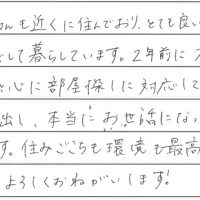 さんも近くに住んでおり、とても良い
して暮らしています。2年前に
心に部屋探しに対応して
出し、本当にお世話にな
す。住みごこちも環境も最高
よろしくおねがいします!